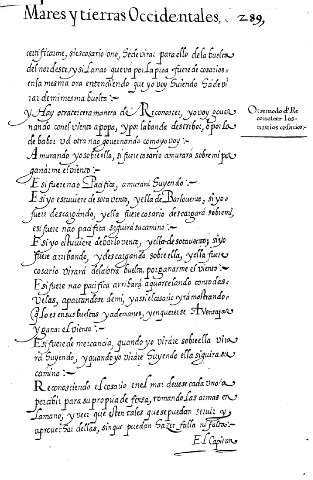 Mares y tierras Occidentales. 289.
certificarme, si es cosario o no, Se de virar para ello de la buelta
del nordeste, y si la nao que va por la proa fuere de cosarios
en la mesma ora entendiendo que yo voy Huyendo Ha de vi
rar de mi mesma buelta.
Y Hay otra tercera manera de Reconoscer, yo voy gouer
nando con el viento a popa, y por la bonde de stribor, o por la
de babor vd otra nao gouernando como yo voy
Otro modo de Re
conoscer los
nauios cosarios.
Amurando yo sobre ella, si fuere cosario amurara sobre mi po
ganarme el viento.
E si fuere nao Pacifica, amurará Huyendo.
E si yo estuuiere de sotauento, y ella de Barlouento, si yo
fuere descargando, y ella fuere cosario descargará sobre mi,
e si fuere nao pacifica seguira su camino.
E si yo estuuiere de barlovento, y ella de sotauento, si yo
fuere arribando, y descargando sobre ella, y ella fuere
cosario virará de la otra buelta, por ganarme el viento.
E si fuere nao pacifica arribará aquartelando con todas
velas, apartandose de mi, y assi el cosario yrá mostrando
que lo es en sus bueltas y ademanes, y en querer te Aventajar
y ganar el viento.
E si fuere de mercancia, quando yo viráre sobre ella vira
rá Huyendo, y quando yo viráre Huyendo ella siguira su
camino.
Reconosciendo el cosario en el mar deue se cada vno a
percibir para su propria defensa, tomando las armas en
la mano, y veer que esten tales que se puedan seruir y
aprouechar dellas, sin que puedan hazer falla ni faltar.
El Capitan